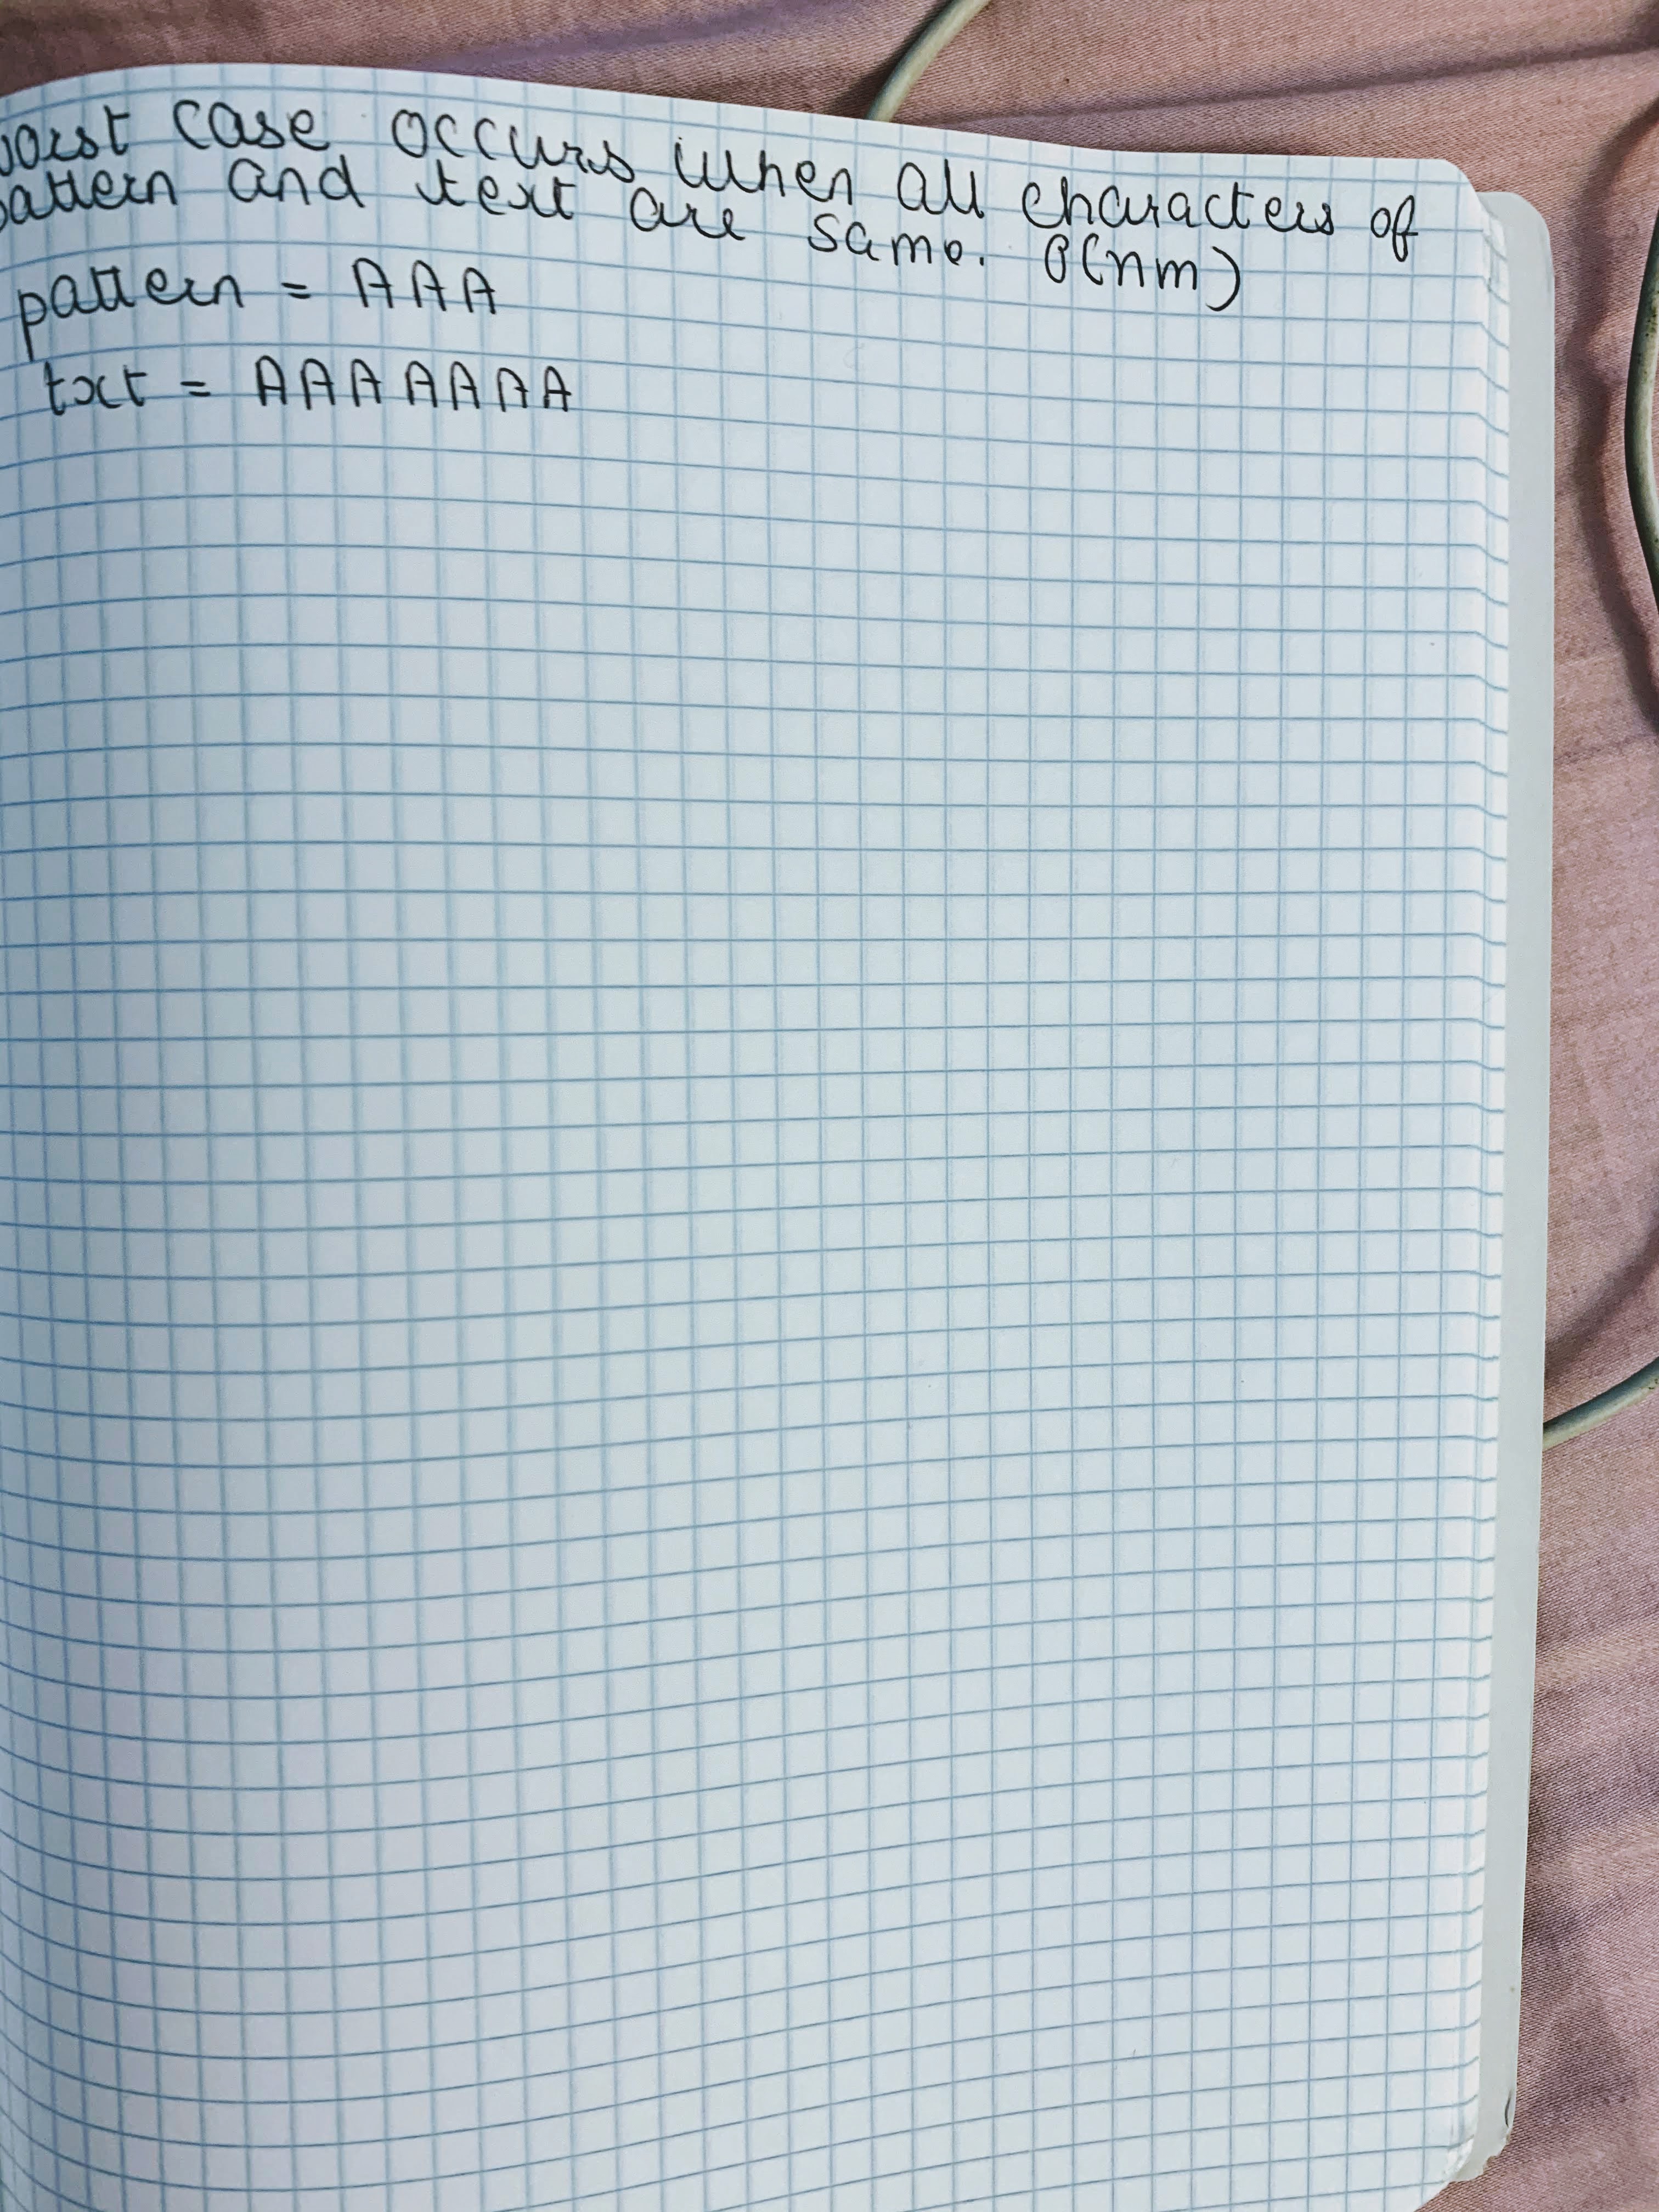 worst case occurs when all characters of
pattern and text are same. O(nm)
pattern = AAA
txt = AAAAAAA